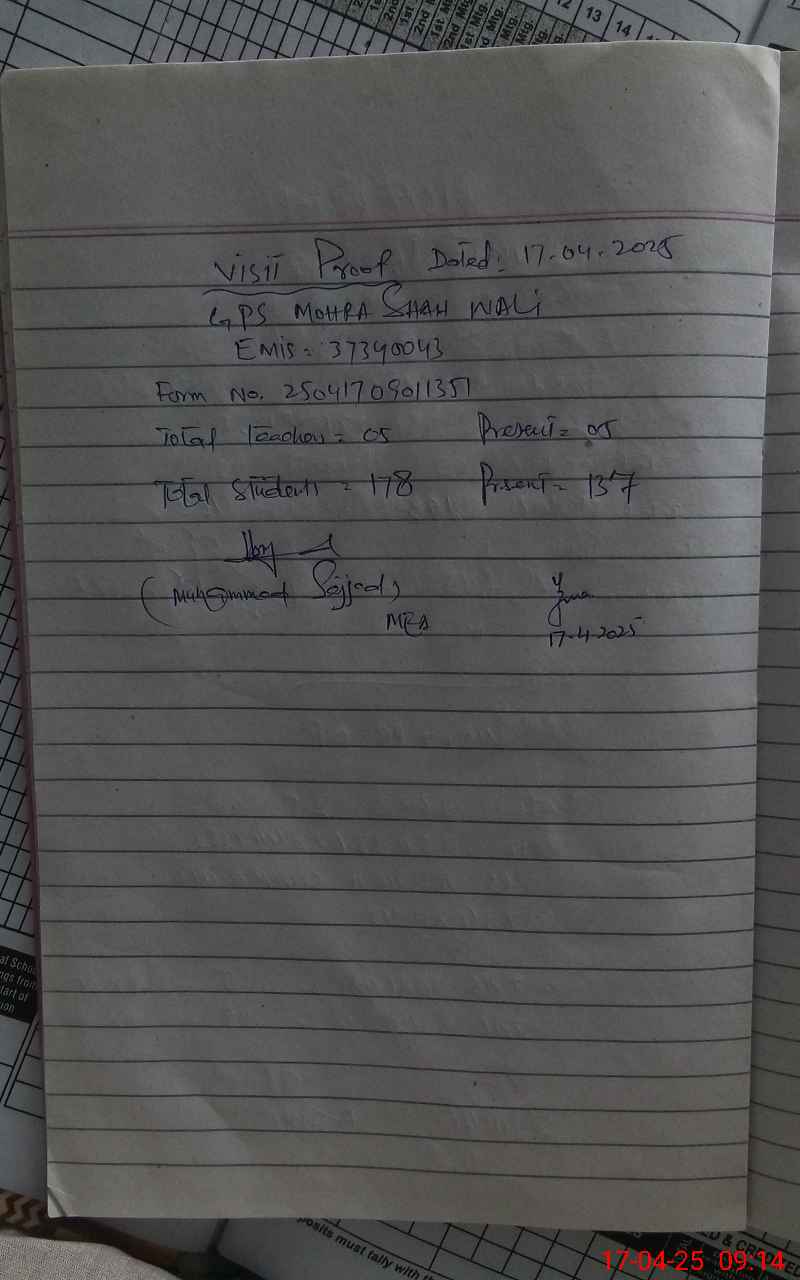 12 13 14
1st Mtg.
2nd Mtg.
Visit Proof Dated: 17.04.2025
GPS MOHRA SHAH WALI
EMIS = 37340043
Form No. 25041709011351
Total Teachers = 05 Present = 05
Total Students = 178 Present = 137
(Muhammad Sajjad)
MEA
17-4-2025
al Schoo
ngs from
tart of
ion
posits must tally with th
17-04-25 09:14